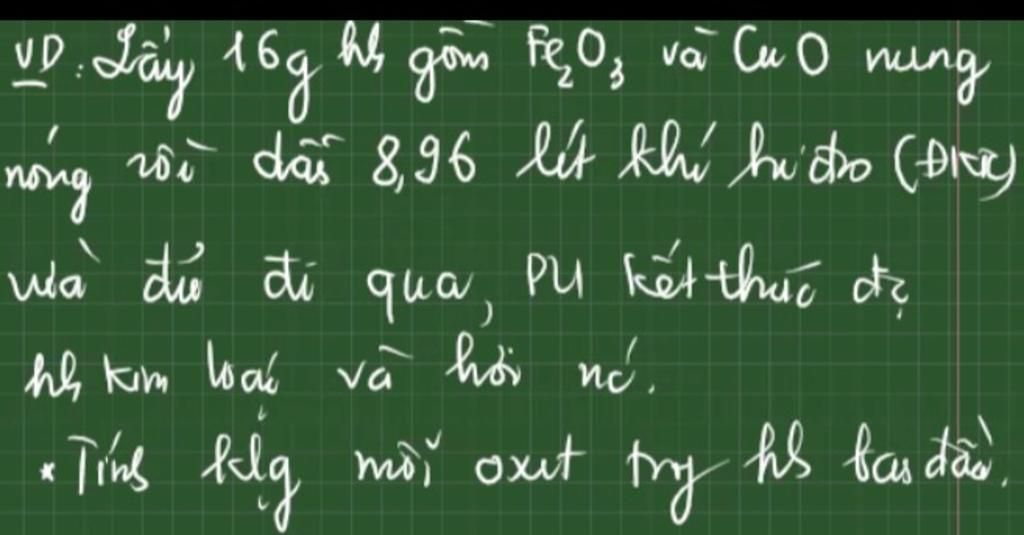 VD: Lấy 16g hh gồm Fe₂O₃ và CuO nung
nóng rồi dẫn 8,96 lít khí hiđro (ĐKTC)
vừa đủ đi qua, PƯ kết thúc đc
hh kim loại và hơi nc.
* Tính klg mỗi oxit trg hh ban đầu.